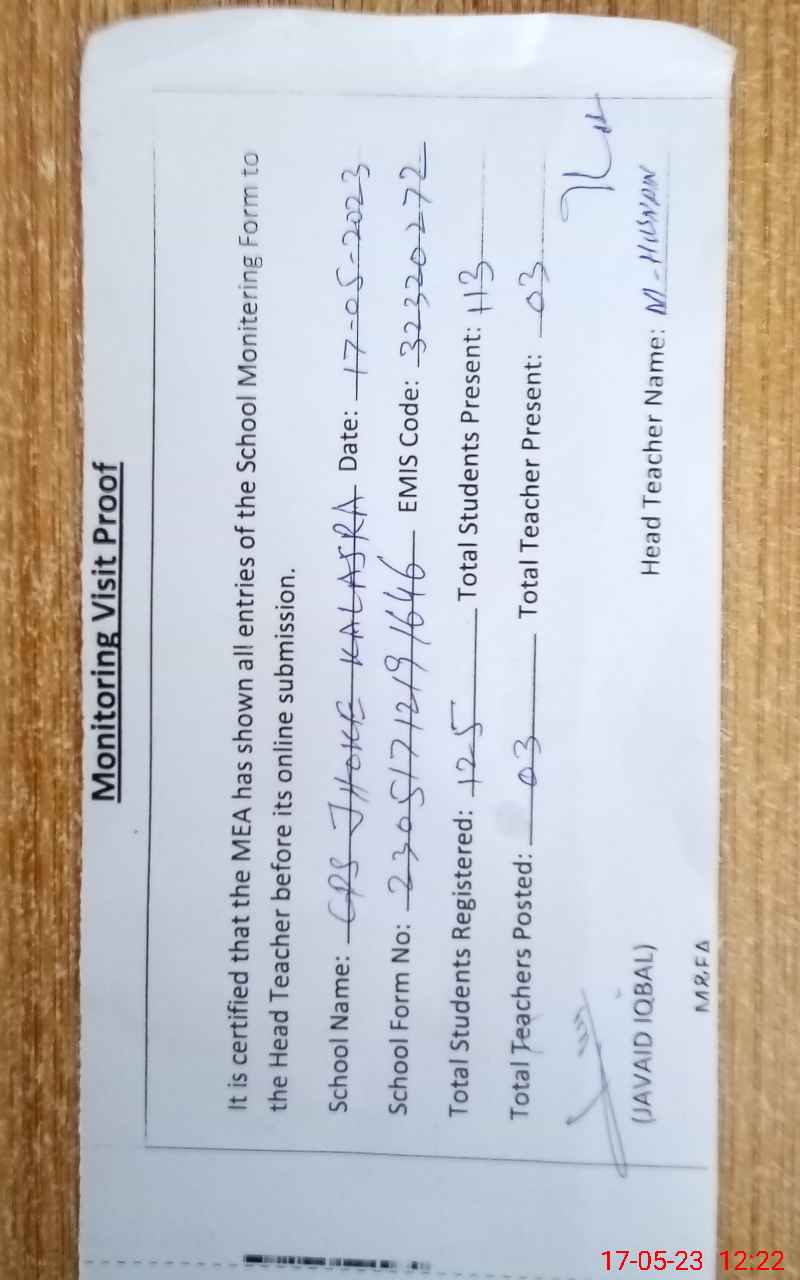 Monitoring Visit Proof
It is certified that the MEA has shown all entries of the School Monitering Form to
the Head Teacher before its online submission.
School Name: GPS JHOKE KALASRA Date: 17-05-2023
School Form No: 23051712191646 EMIS Code: 32320272
Total Students Registered: 125 Total Students Present: 113
Total Teachers Posted: 03 Total Teacher Present: 03
(JAVAID IQBAL) Head Teacher Name: M-HUSNAIN
M&EA
17-05-23 12:22